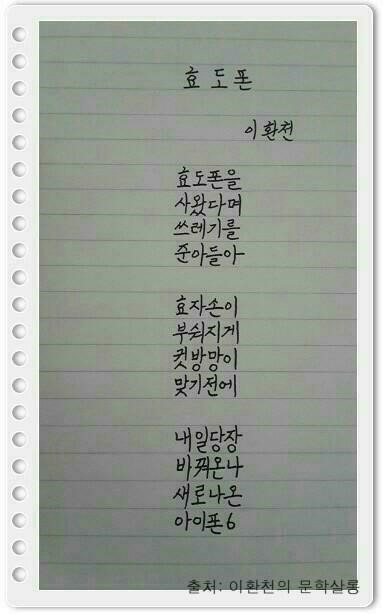 효도폰
이환천
효도폰을
사왔다며
쓰레기를
준아들아
효자손이
부숴지게
컷방망이
맞기전에
내일당장
바꿔온나
새로나온
아이폰6
출처: 이환천의 문학살롱